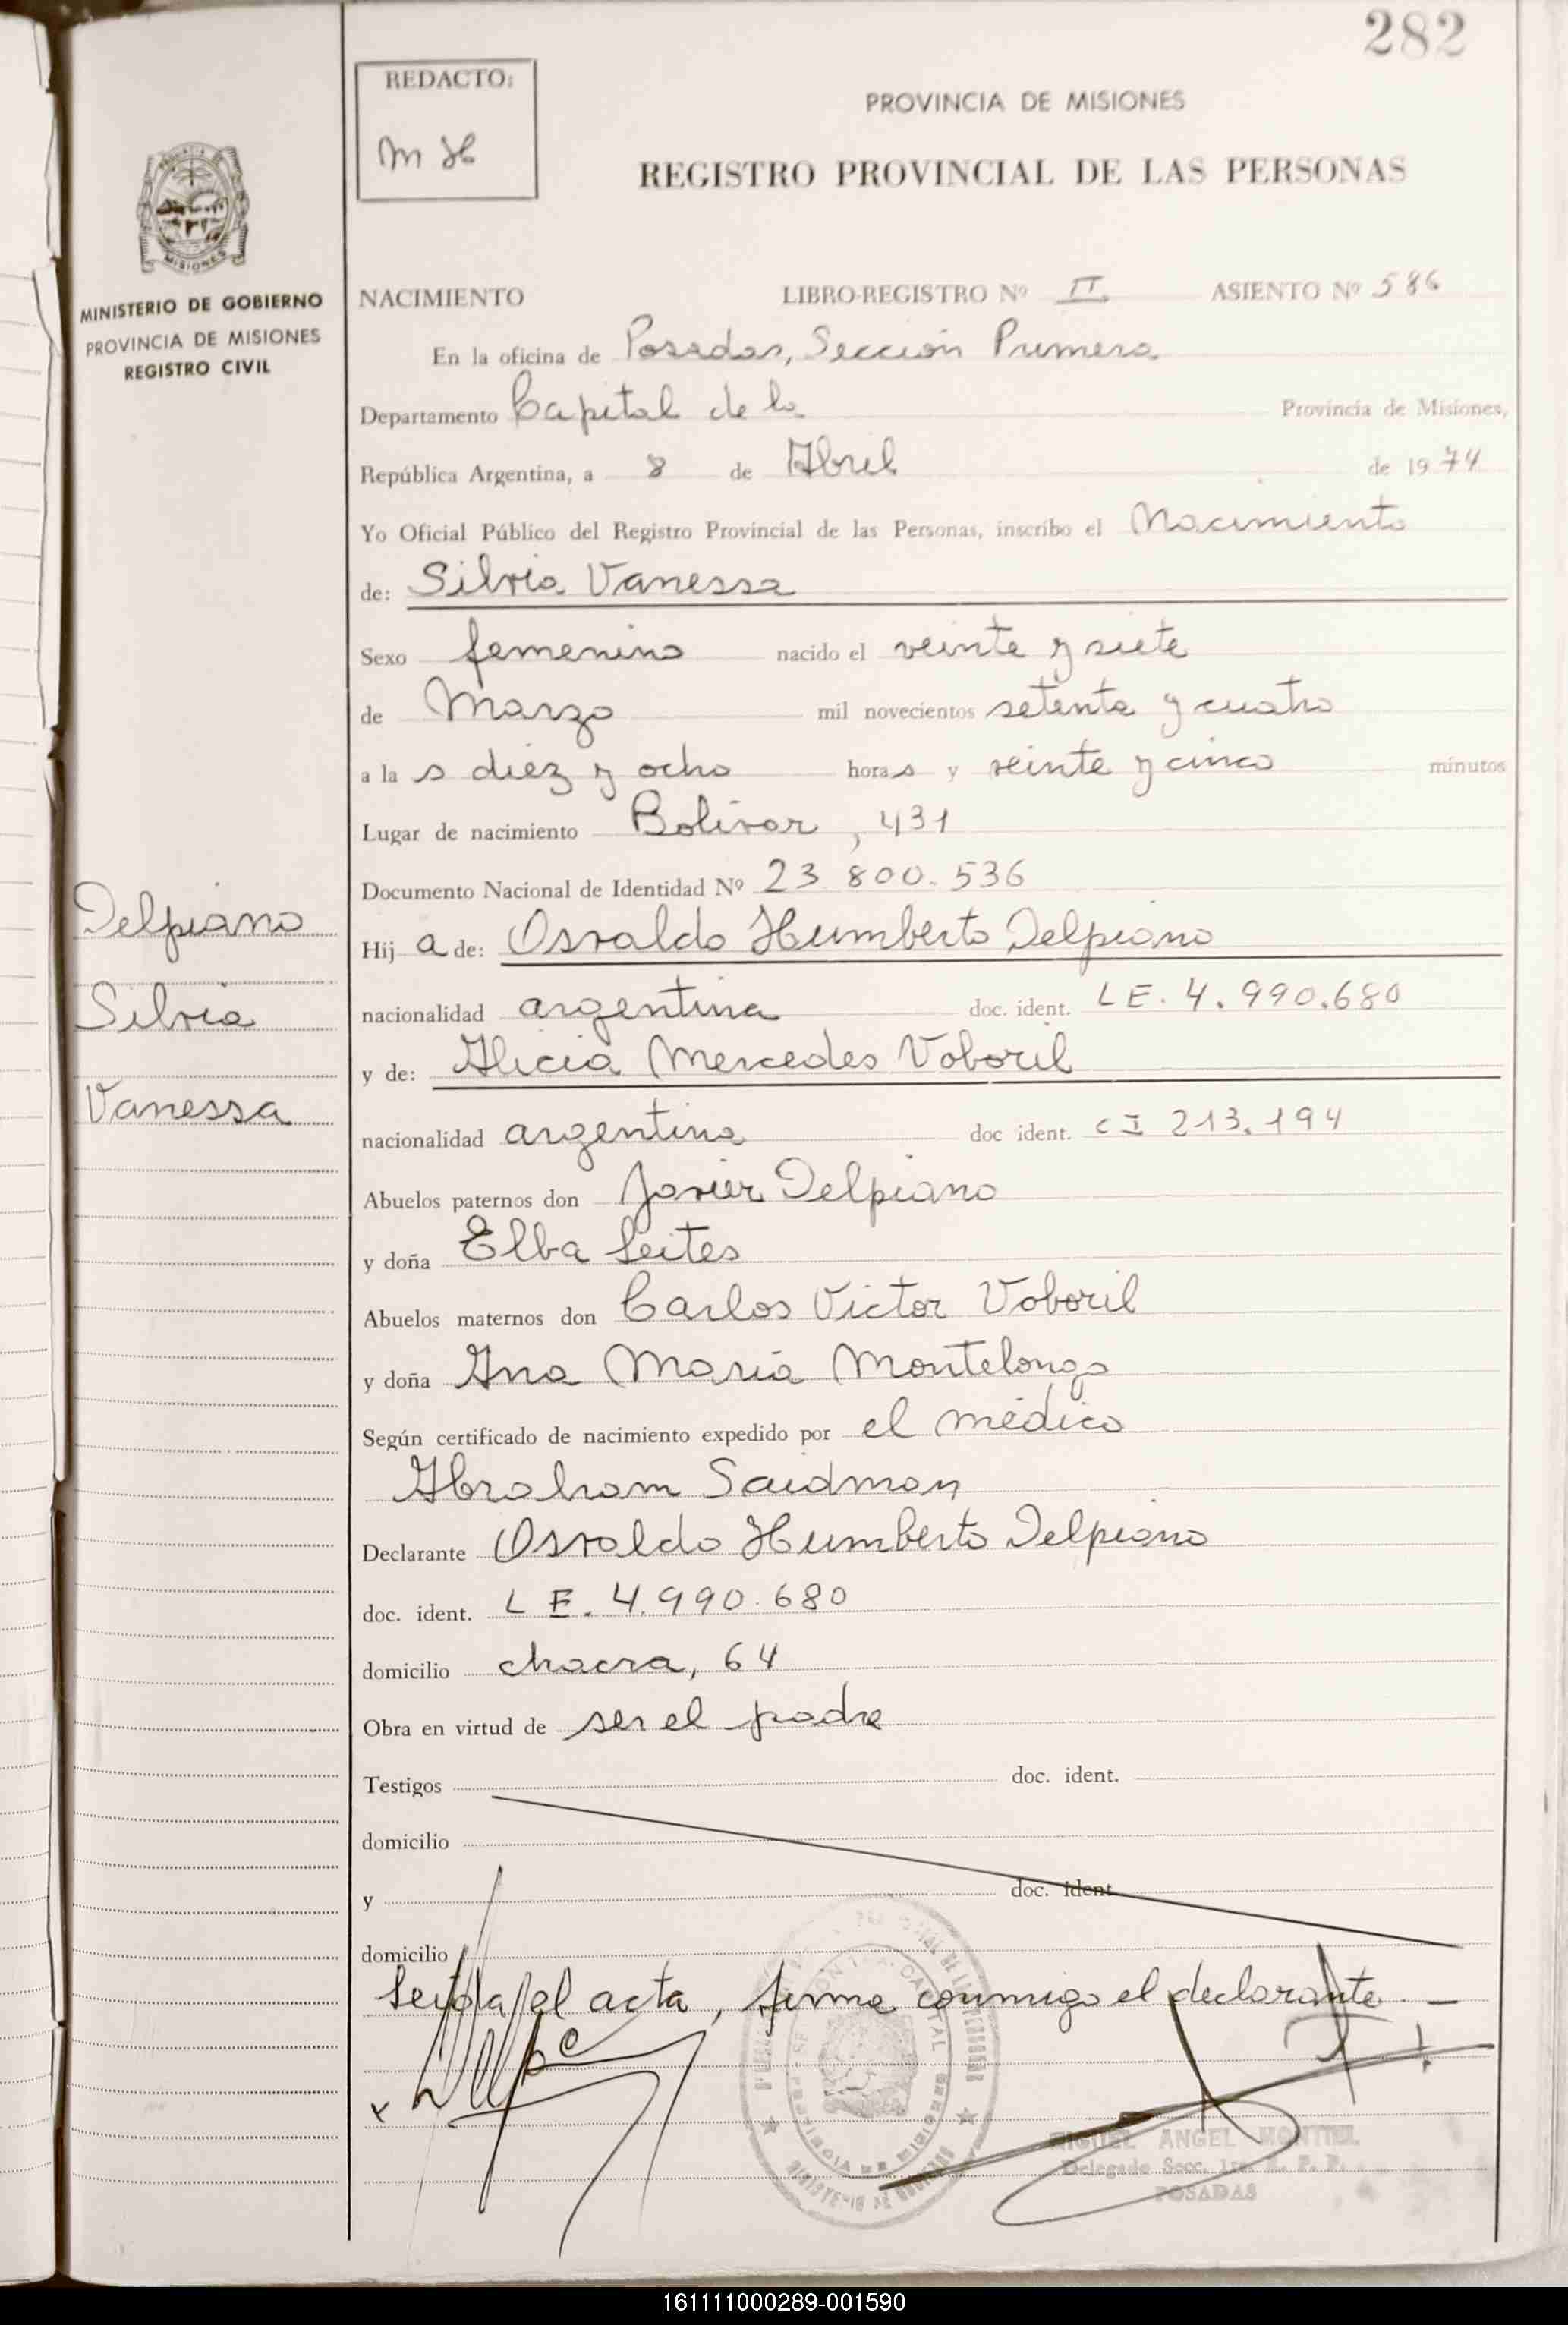 282
REDACTO:
M H
PROVINCIA DE MISIONES
REGISTRO PROVINCIAL DE LAS PERSONAS
MISIONES
MINISTERIO DE GOBIERNO
PROVINCIA DE MISIONES
REGISTRO CIVIL
NACIMIENTO LIBRO-REGISTRO Nº II ASIENTO Nº 586
En la oficina de Posadas, Sección Primera
Departamento Capital de la Provincia de Misiones,
República Argentina, a 8 de Abril de 1974
Yo Oficial Público del Registro Provincial de las Personas, inscribo el Nacimiento
de: Silvia Vanessa
Sexo femenino nacido el veinte y siete
de Marzo mil novecientos setenta y cuatro
a la s diez y ocho horas y veinte y cinco minutos
Lugar de nacimiento Bolívar, 431
Documento Nacional de Identidad Nº 23.800.536
Delpiano
Silvia
Vanessa
Hij a de: Osvaldo Humberto Delpiano
nacionalidad argentina doc. ident. LE. 4.990.680
y de: Alicia Mercedes Voboril
nacionalidad argentina doc ident. CI 213.194
Abuelos paternos don Javier Delpiano
y doña Elba Leites
Abuelos maternos don Carlos Victor Voboril
y doña Ana María Montelongo
Según certificado de nacimiento expedido por el médico
Abraham Saidman
Declarante Osvaldo Humberto Delpiano
doc. ident. LE. 4.990.680
domicilio chacra, 64
Obra en virtud de ser el padre
Testigos doc. ident.
domicilio
y doc. ident.
domicilio
Leída el acta, firma conmigo el declarante.—
MIGUEL ANGEL MONTIEL
Delegado Secc. 1ra. R. P. P.
POSADAS
161111000289-001590